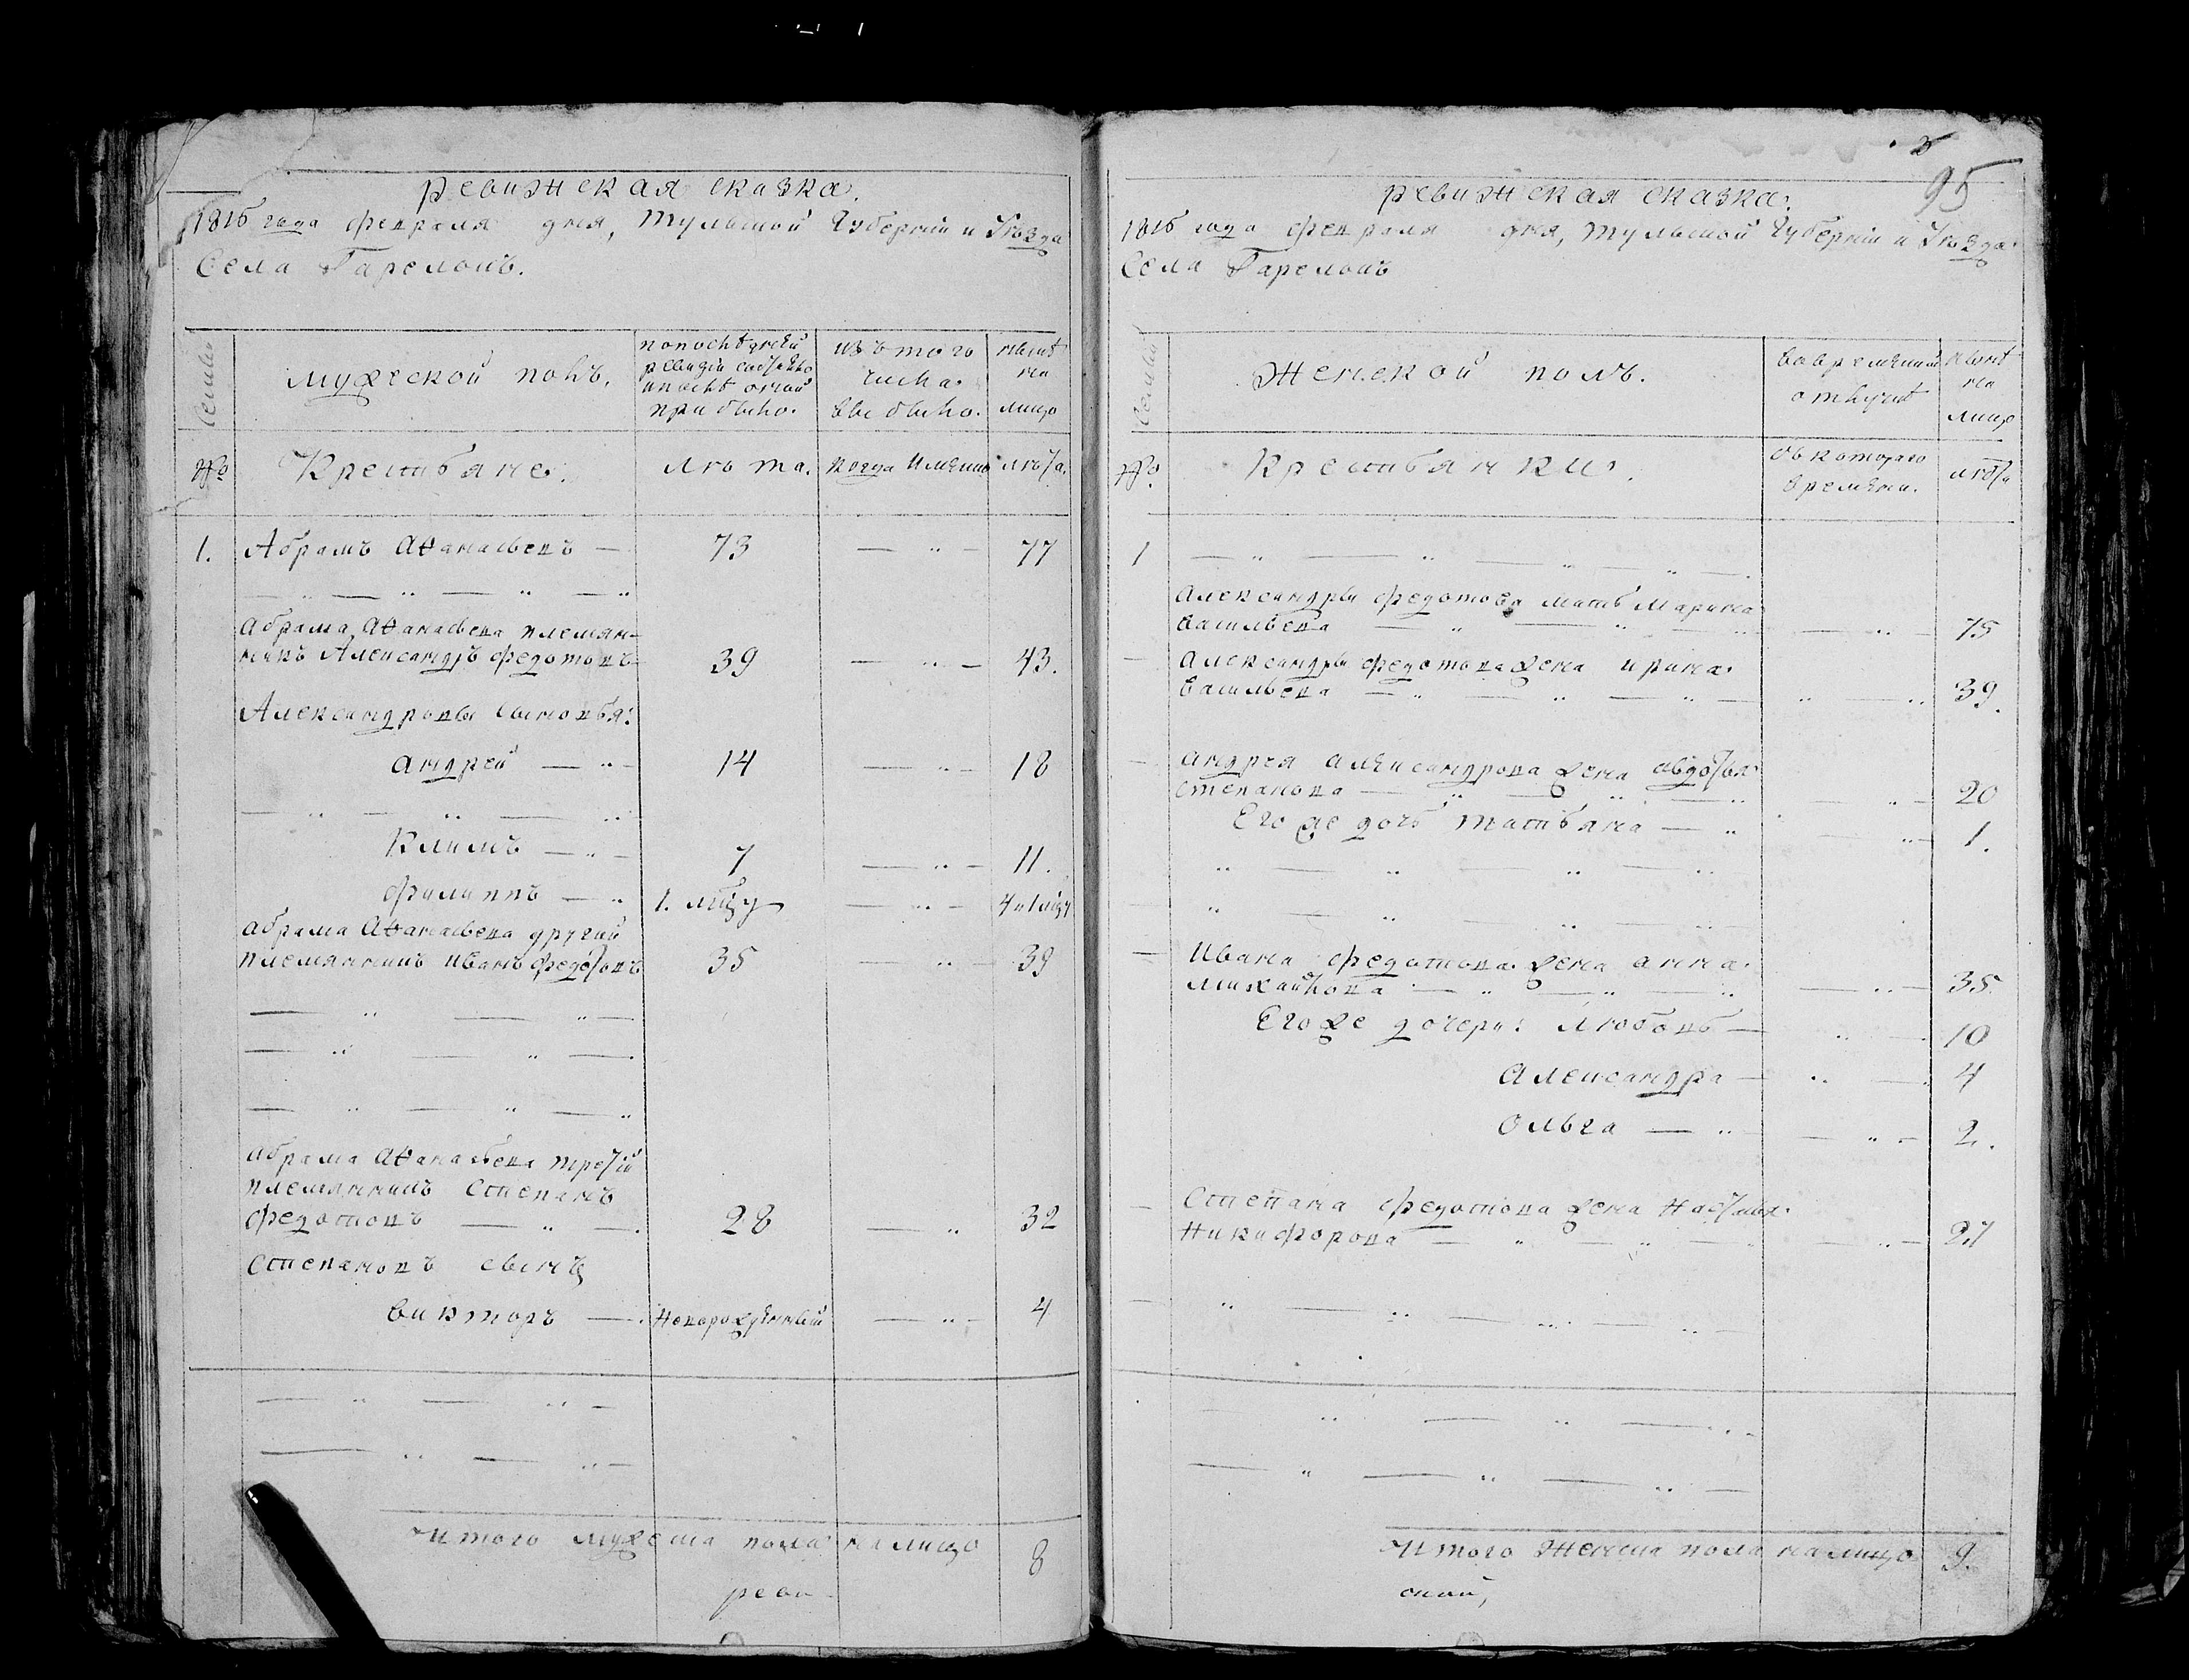 Ревижская сказка.
1816 года февраля дня, Тульской Губернiи и Уѣзда
Села Гарелокъ.
Семьи
Мужеской полъ.
по последней
ревизiи состояло
и после оной
прибыло.
изъ того
числа
выбыло.
ныне
на
лицо
№
Крестьяне.
Лѣта.
когда имянно
лѣта.
1. Абрамъ Аѳанасьевъ — 73 — „ — 77
Абрама Аѳанасьева племян-
никъ Александръ Федотовъ 39 — „ — 43.
Александровы сыновья:
Андрей — „ 14 — „ — 18
Климъ — „ — 7 — „ — 11.
Филиппъ — „ 1. мцу — „ — 4 и 1 мцу
Абрама Аѳанасьева другой
племянникъ Иванъ Федотовъ 35 — „ — 39
Абрама Аѳанасьева третiй
племянникъ Степанъ
Федотовъ — „ — 28 — „ 32
Степановъ сынъ
Викторъ — новорожденный — „ — 4
Итого мужеска пола налицо 8
реви
3
95
Ревижская сказка.
1816 года февраля дня, Тульской Губернiи и Уѣзда
Села Гарелокъ
Семьи
Женской полъ.
во временной
отлучке
ныне
на
лицо
№
Крестьянки.
съ котораго
времяни.
лѣта
1
Александры Федотова мать Марина
Васильева — „ — 75
Александры Федотова жена Ирина
Васильева — „ — 39.
Андрея Александрова жена Авдотья
Степанова — „ — 20
Его же дочь Татьяна — „ 1.
Ивана Федотова жена Анна
Михайлова — „ — 35.
Его же дочери: Любовь — 10
Александра — 4
Ольга — „ 2.
Степана Федотова жена Настасья
Никифорова — „ — 27
Итого Женска пола налицо 9.
ской,